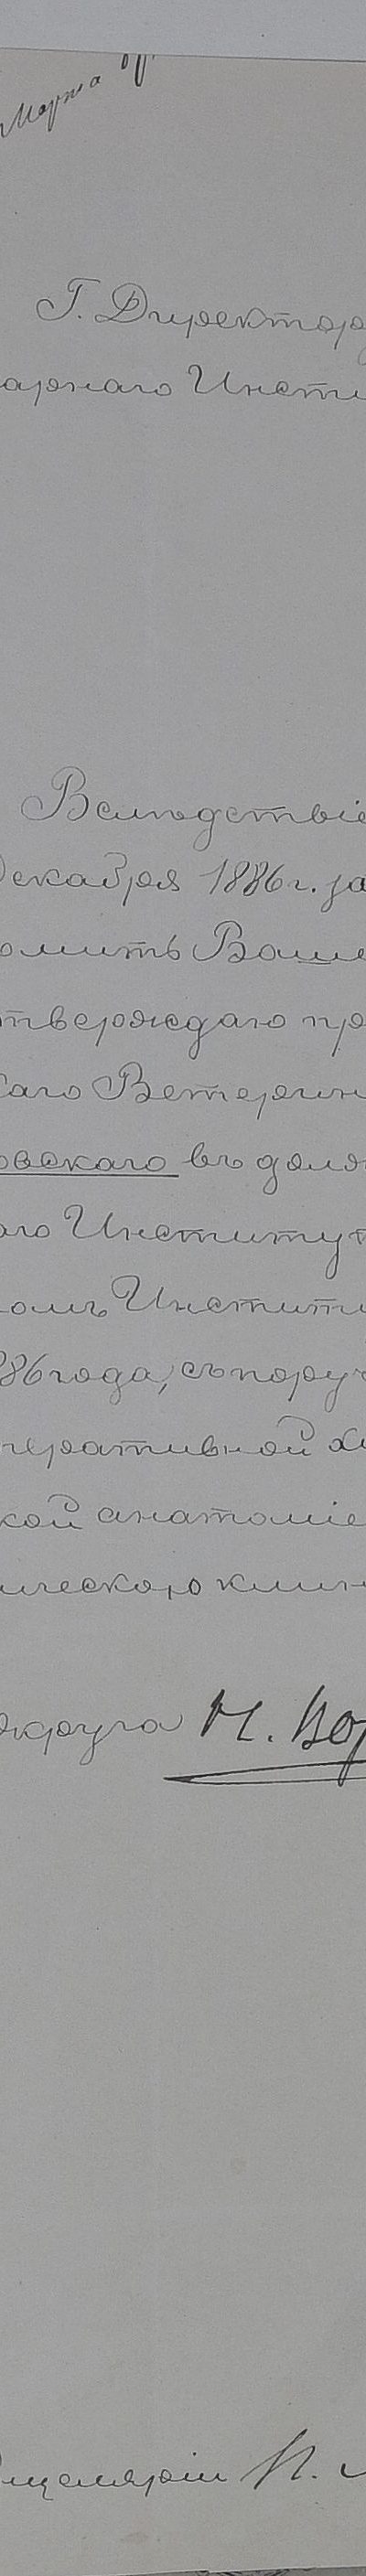 Марта
Г. Директор
арнаго Инсти
Вслѣдствіе
декабря 1886 г. за
омить Ваше
тверждаю пр
каго Ветерин
овскаго въ долж
аго Институт
омъ Институ
86 года, съ поруч
перативной хи
кой анатоміе
ическою клин
округа Н. Вор
нцеляріи П.